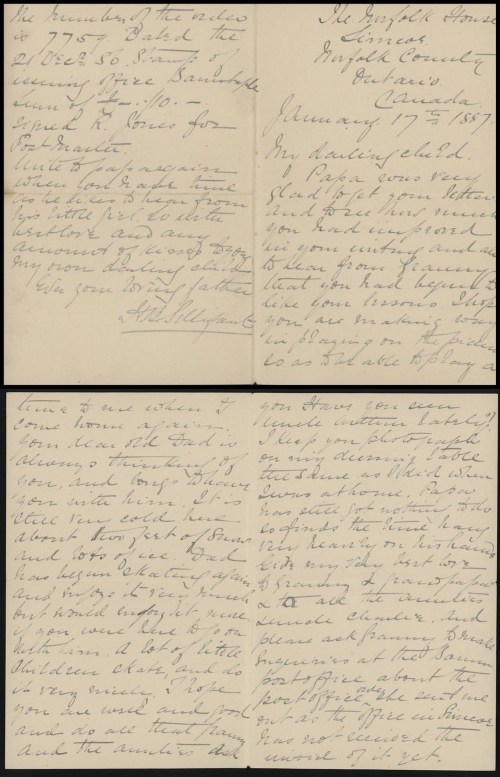 The Norfolk House
Simcoe.
Norfolk County
Ontario
Canada.
January 17th 1887
My darling child.
Papa was very
glad to get your letter
and to see how much
you had improved
in your writing and also
to hear from Granny
that you had begun to
like your lessons I hope
you are making way
in playing on the piano
so as to be able to play a
tune to me when I
come home again.
Your dear old Dad is
always thinking of
you, and longs to have
you with him. It is
still very cold here
about two feet of snow
and lots of ice. Dad
has begun skating again
and enjoys it very much
but would enjoy it more
if you were here to go on
with him. A lot of little
children skate, and do
it very nicely. I hope
you are well and good
and do all that granny
and the aunties ask
you. Have you seen
Uncle Arthur lately?
I keep your photograph
on my dressing table
the same as I did when
I was at home. Papa
has still got nothing to do
so finds the time hang
very heavily on his hands
Give my very best love
to Granny & grandpapa
& to all the aunties
& uncle Charlie. And
please ask granny to make
enquiries at the
post office about the
post office order she sent me
out as the office in Simcoe
has not received the
word of it yet.
The number of the order
is 7759 Dated the
21 Decr 86. Stamp of
issuing office Barnstaple
Sum of
signed R. Jones for
Postmaster.
Write to papa again
when you have time
as he likes to hear from
his little girl. So with
best love and any
amount of kisses to you
my own darling child
Ever your loving father